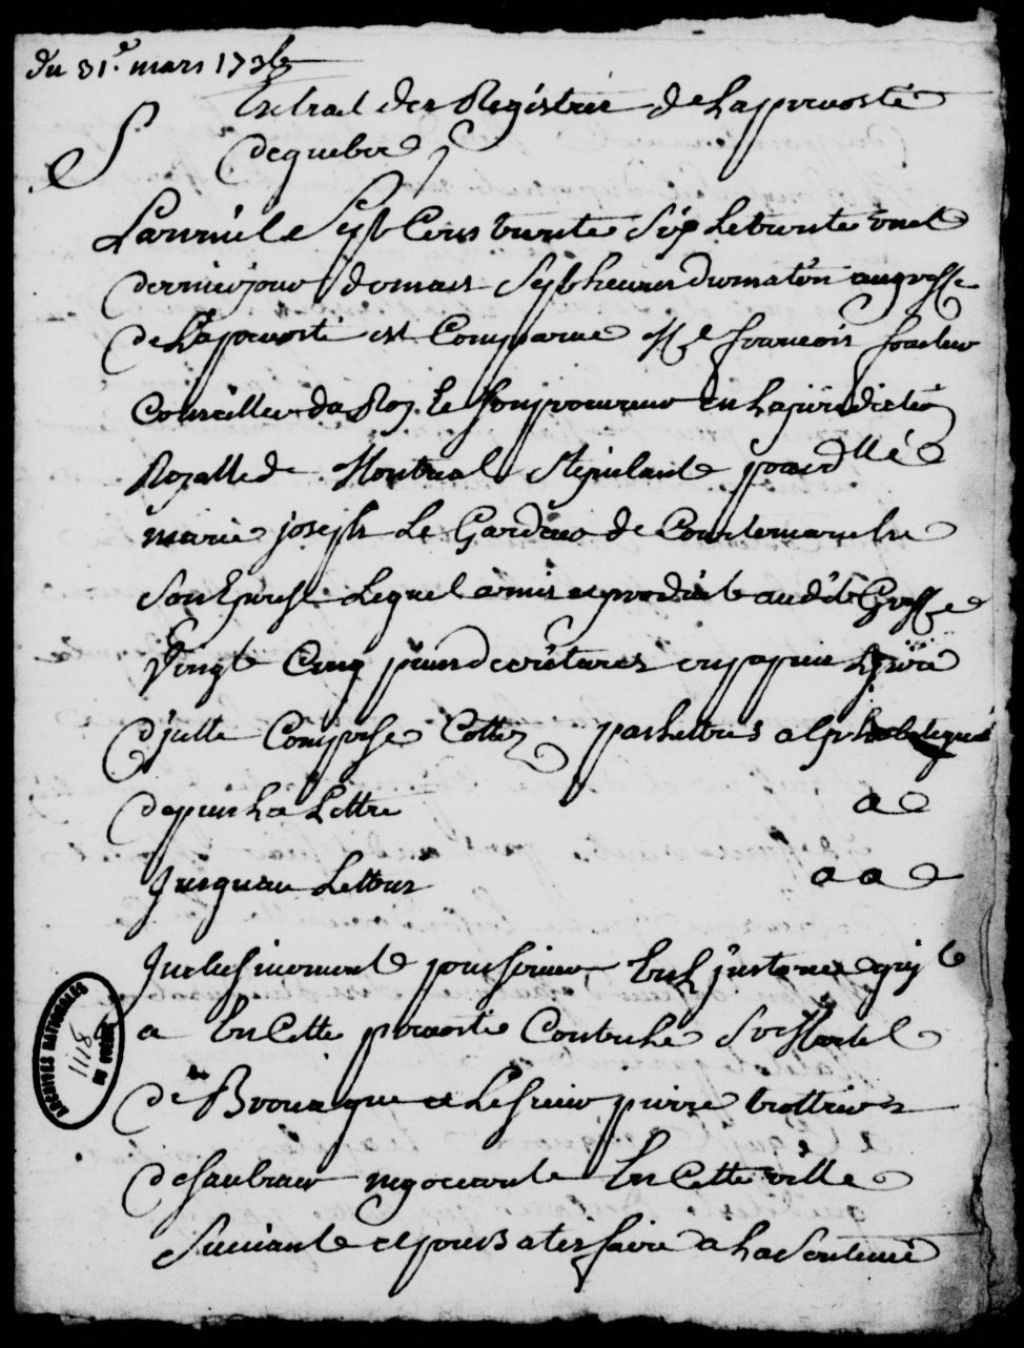 du 31.e mars 1736
Extrait des Régistres de La prevosté
de quebec
L'an mil Sept Cens trente Six Le trente unie
dernier jour de mars Sept heures du matin au greffe
de La prevosté est Comparue Me françois foucher
Conseiller du Roy. Et Son procureur en La jurisdiction
Royalle de Montreal Stipulante pour dlle
marie joseph Le Gardeur de Courtemanche
Son Epouse Lequel a mis et produit audit Greffe
Vingt Cinq pieces decritures en papier
d'jcelle Compose Cottez par Lettres alphabetiques
depuis La Lettre a
Jusqu'au Lettres a a
Jnclusivement pour Servir En L'jnstance qui
a En Cette prevosté Contre Le Sr Martel
de Brouague et Le Sieur pierre trottier
desaulniers negociant En Cette ville
Suivante et pour satisfaire a La Sentence
ARCHIVES NATIONALES
1118
DE QUÉBEC